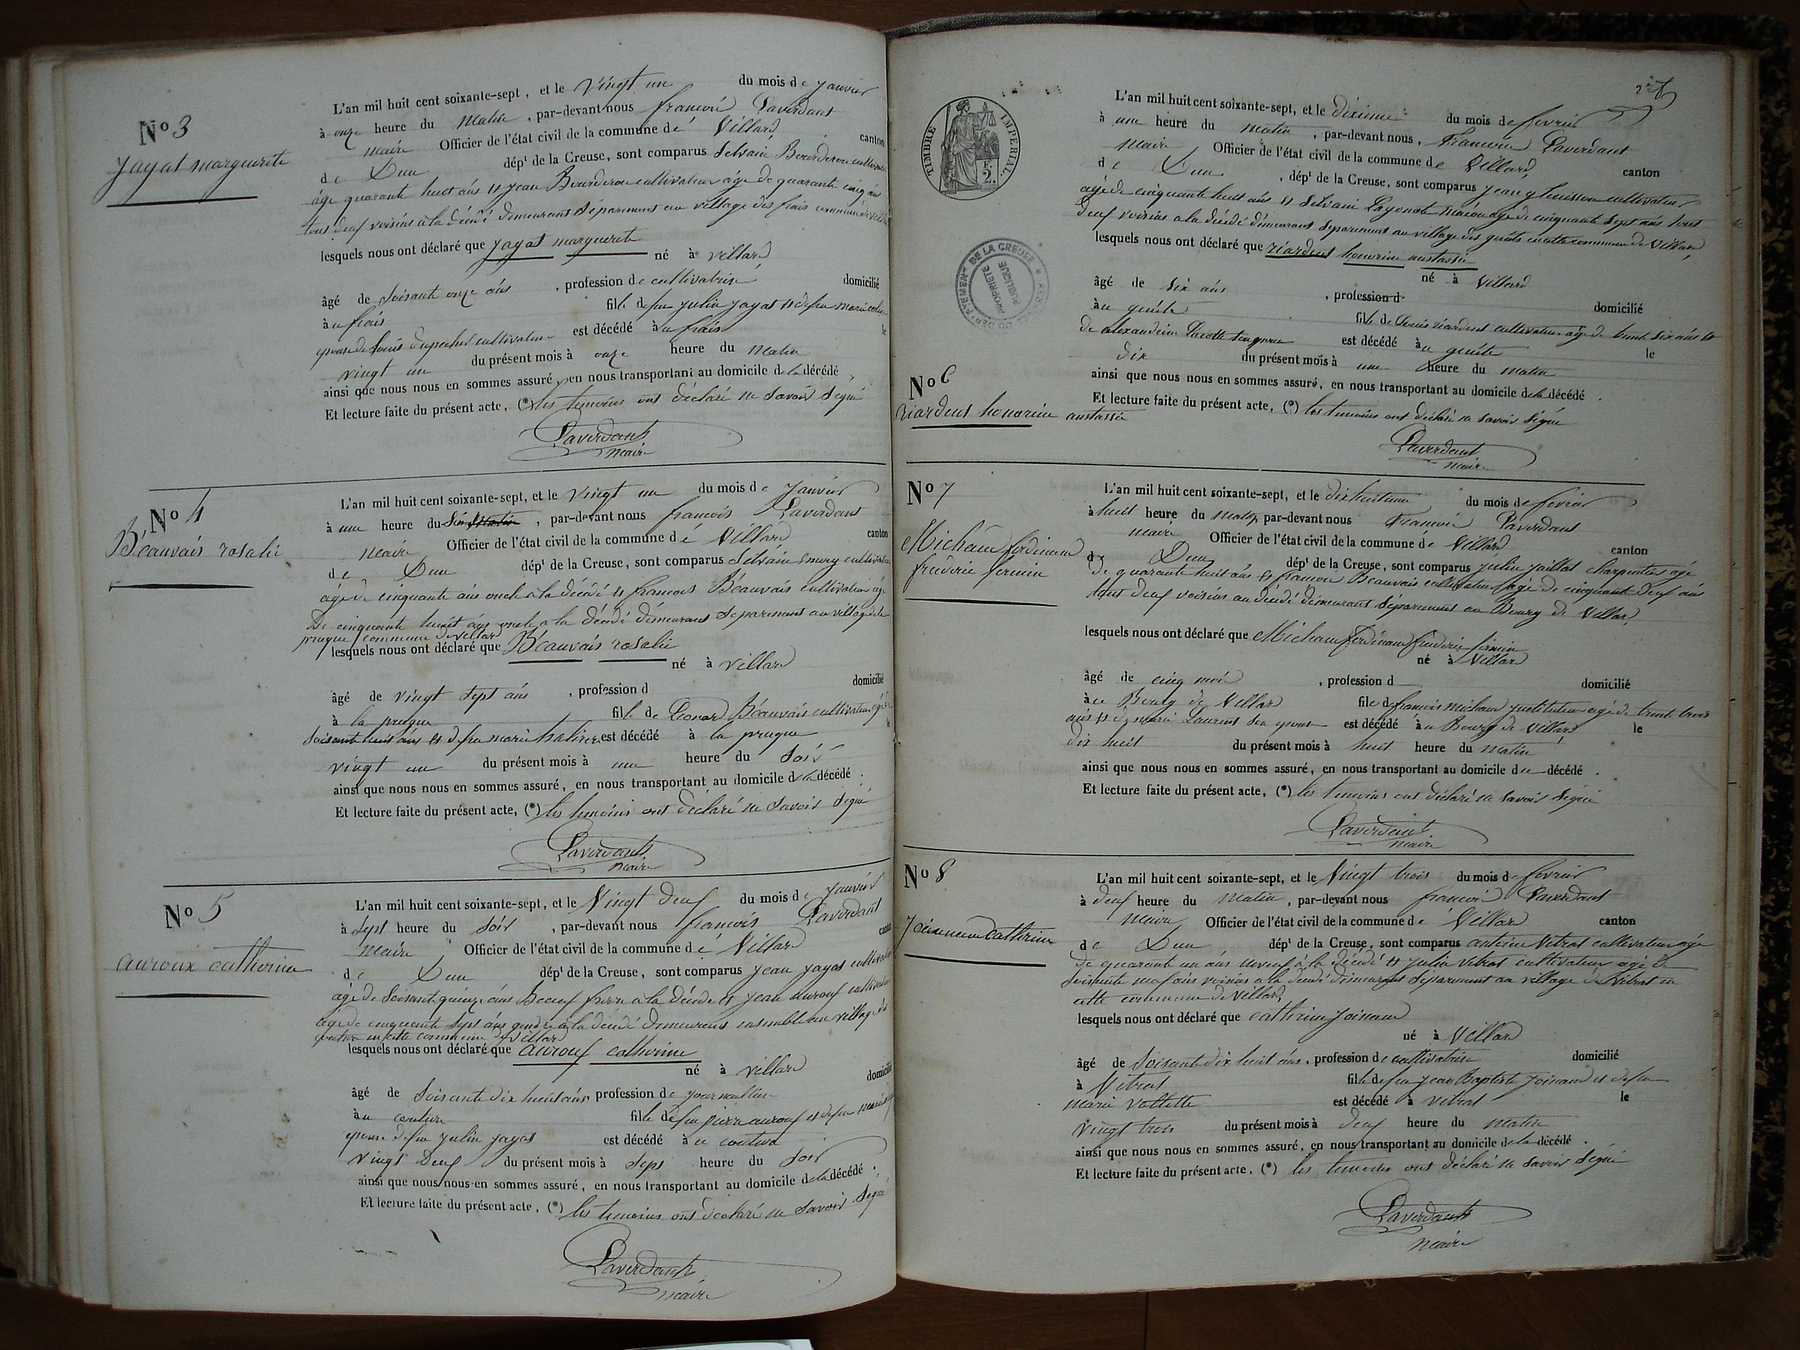 N° 3
Jayat marguerite
L'an mil huit cent soixante-sept, et le vingt un du mois de janvier
à onze heure du matin, par-devant nous françois Laverdant
maire Officier de l'état civil de la commune de Villard canton
de Dun dépt de la Creuse, sont comparus Selvain Bourderon cultivateur
âgé quarante huit ans et jean Bourderon cultivateur âgé de quarante cinq ans
tous deux voisins à la décédé demeurant séparement au village des frais commune de villard
lesquels nous ont déclaré que jayat marguerite
né à villard
âgé de soisante onze ans, profession de cultivatrice domicilié
à u frais fille de feu julien jayat et de feu marie
epouse de Louis dupechet cultivateur est décédé à u frais le
vingt un du présent mois à onze heure du matin
ainsi que nous nous en sommes assuré, en nous transportant au domicile de la décédé
Et lecture faite du présent acte, (*) les temoins ont déclaré ne savoir signé
Laverdant
maire
N° 4
Béauvais rosalie
L'an mil huit cent soixante-sept, et le vingt un du mois de janvier
à une heure du soir matin, par-devant nous françois Laverdant
maire Officier de l'état civil de la commune de Villard canton
de Dun dépt de la Creuse, sont comparus Selvain emery cultivateur
âgé de cinquante ans oncle a la décédé et francois Béauvais cultivateur âgé
De cinquante huit ans oncle a la décédé demeurant séparement au village de la
prugne commune de villard
lesquels nous ont déclaré que Béauvais rosalie
né à villard
âgé de vingt sept ans, profession d domicilié
à la prugne fille de Leonard Béauvais cultivateur âgé de
soisante huit ans et de feu marie est décédé à la prugne le
vingt un du présent mois à une heure du soir
ainsi que nous nous en sommes assuré, en nous transportant au domicile de la décédé.
Et lecture faite du présent acte, (*) les temoins ont déclaré ne savoir signé
Laverdant
maire
N° 5
auroux catherine
L'an mil huit cent soixante-sept, et le vingt deux du mois de janvier
à sept heure du soir, par-devant nous françois Laverdant
maire Officier de l'état civil de la commune de Villard canton
de Dun dépt de la Creuse, sont comparus jean jayat cultivateur
âgé de soisante quinze ans beauf frere a la décédé et jean auroux cultivateur
âgé de cinquante sept ans gendre a la décédé demeurant ensemble au village du
couture en cette commune de villard
lesquels nous ont déclaré que auroux catherine
né à villard
âgé de soisante dix huit ans profession de journalière domicilié
à u couture fille de feu pierre auroux et de feu marie
epouse de feu julien jayat est décédé à u couture
vingt deux du présent mois à sept heure du soir
ainsi que nous nous en sommes assuré, en nous transportant au domicile de la décédé.
Et lecture faite du présent acte, (*) les temoins ont déclaré ne savoir signé
Laverdant
maire
TIMBRE IMPERIAL
F.
2.
PROPRIETE PUBLIQUE
N° 6
riardent honorine anstasie
L'an mil huit cent soixante-sept, et le dixieme du mois de fevrier
à une heure du matin, par-devant nous, François Laverdant
maire Officier de l'état civil de la commune de Villard
de Dun, dépt de la Creuse, sont comparus jean canton
âgé de cinquante huit ans et Selvain maçon âgé de cinquante sept ans tous
deux voisins a la décédé demeurant séparement au village des commune de Villard
lesquels nous ont déclaré que riardent honorine anstasie
né à Villard
âgé de six ans, profession d domicilié
à u fille de Louis riardent cultivateur âgé de trente six ans et
de alexandrine son epouse est décédé à u le
dix du présent mois à une heure du matin
ainsi que nous nous en sommes assuré, en nous transportant au domicile de la décédé.
Et lecture faite du présent acte, (*) les temoins ont déclaré ne savoir signé
Laverdant
maire
N° 7
Michau ferdinand
frederic firmin
L'an mil huit cent soixante-sept, et le dix huitieme du mois de fevrier
à huit heure du matin, par-devant nous François Laverdant
maire Officier de l'état civil de la commune de Villard canton
de Dun dépt de la Creuse, sont comparus julien jaillot charpentier âgé
de quarante huit ans et francois Beauvais cultivateur âgé de cinquante deux ans
tous deux voisins au décédé demeurant séparement au Bourg de Villard
lesquels nous ont déclaré que Michau ferdinand frederic firmin
né à Villard
âgé de cinq moi, profession d domicilié
à u Bourg de Villard fils de francois michau instituteur âgé de trente trois
ans et de marie Laurent son epouse est décédé à u Bourg de Villard le
dix huit du présent mois à huit heure du matin
ainsi que nous nous en sommes assuré, en nous transportant au domicile du décédé.
Et lecture faite du présent acte, (*) les temoins ont déclaré ne savoir signé
Laverdant
maire
N° 8
Joineneau catherine
L'an mil huit cent soixante-sept, et le vingt trois du mois de fevrier
à deux heure du matin, par-devant nous françois Laverdant
maire Officier de l'état civil de la commune de Villard canton
de Dun dépt de la Creuse, sont comparus antoine vitrat cultivateur âgé
de quarante un ans neveu à la décédé et julien vitrat cultivateur âgé de
soisante neuf ans voisin a la décédé demeurant séparement au village de Vitrat en
cette commune de Villard
lesquels nous ont déclaré que catherine joinaud
né à Villard
âgé de soisante dix huit ans, profession de cultivatrice domicilié
à Vitrat fille de feu jean Baptiste joinaud et de feu
marie est décédé à vitrat le
vingt trois du présent mois à deux heure du matin
ainsi que nous nous en sommes assuré, en nous transportant au domicile de la décédé.
Et lecture faite du présent acte, (*) les temoins ont déclaré ne savoir signé
Laverdant
maire